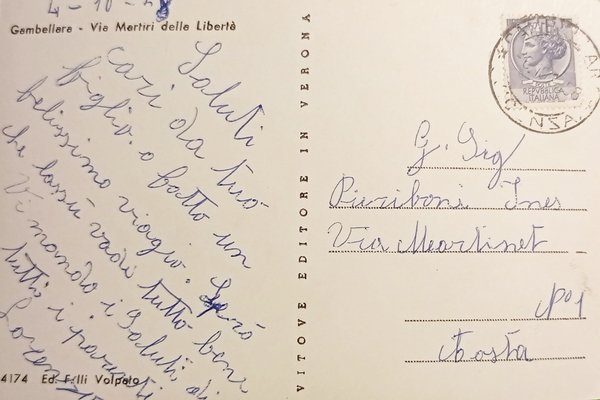 4-10-
Gambellara - Via Martiri della Libertà
Saluti
cari da tuo
figlio. o fatto un
belissimo viagio. Però
che lassù vada tutto bene
Vi mando i Saluti di
tutti i parenti
4174 Ed. F.lli Volpato
VITOVE EDITORE IN VERONA
REPVBBLICA
ITALIANA
G. Sig
Pieriboni Ines
Via Martinet
N° 1
Aosta